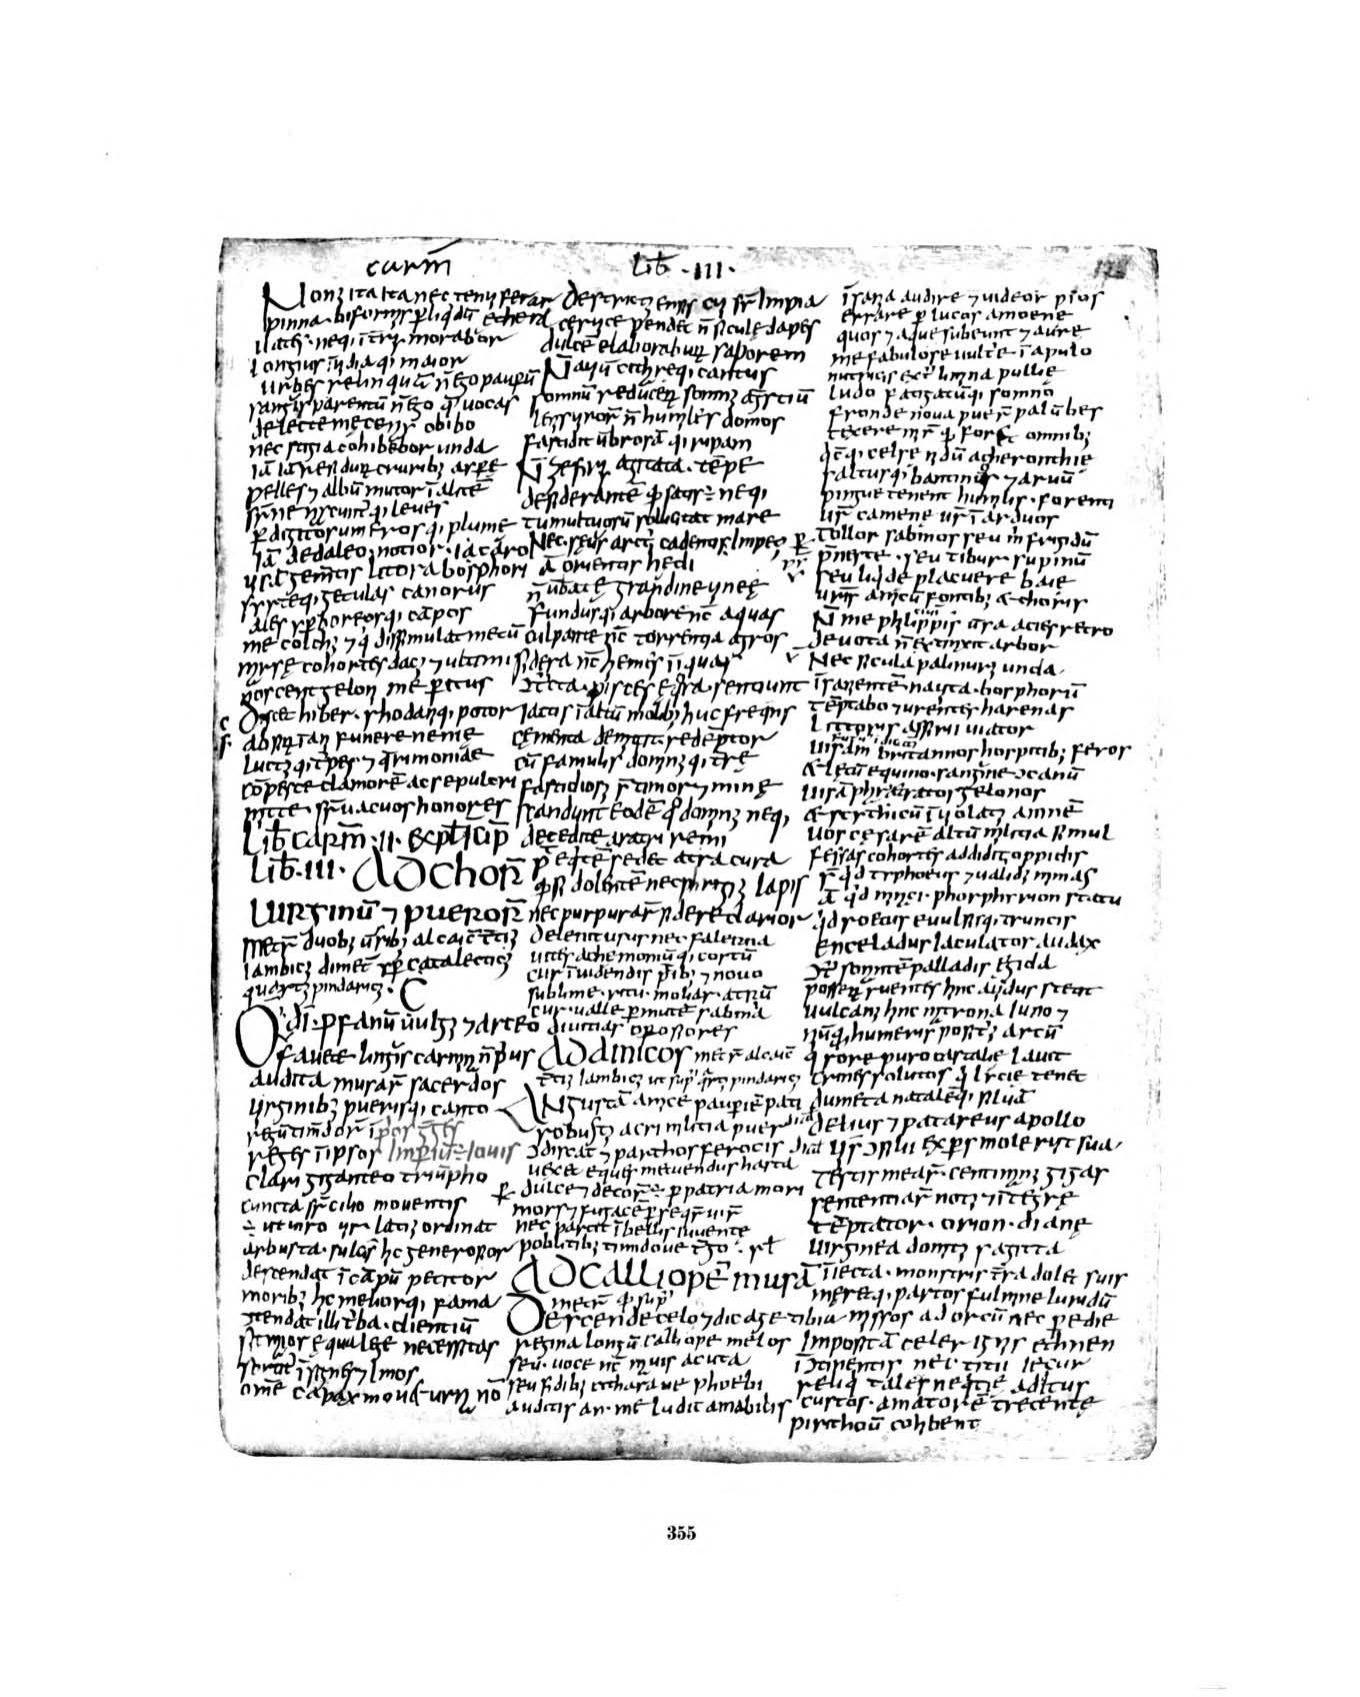 carm̄
Lib̄ ·III·
Non usitata nec tenui ferar
pinna · biformis ꝑ liqidū ethera
uates · neq; in terris morabor
longius · inuidiaq; maior
urbes relinquā n̄ ego pauperū
sanguis parentū n̄ ego quē uocas
delecte mecenas obibo
nec stigia cohibebor unda
iā iā residunt cruribus asperę
pelles ⁊ albū mutor in alitē
supne nascuntq; leues
ꝑ digitos umerosq; plume
iā dedaleo notior icaro
uisā gementis litora bosphori
sirtesq; getulas canorus
ales yꝑboreosq; cāpos
me colchus ⁊ qi dissimulat metū
marsę cohortis dacus ⁊ ultimi
noscent geloni me ꝑitus
discet hiber · rhodaniq; potor
absint inani funere nenię
luctusq; turpes ⁊ qrimonię
cōpesce clamorē ac sepulcri
mitte · suꝑuacuos honores
Lib̄ carm̄ ·II· explīc incip̄
lib̄ ·III· AD choR̄
uirginū ⁊ pueroR̄
metr̄ duob; uersib; alcaic̄
iambicus dimetr̄ catalecticus
quartus pindaricus ·
Odi ·pfanū uulgus ⁊ arceo
fauete · linguis carmina n̄ prius
audita musar̄ sacerdos
uirginib; puerisq; canto
regū timendor̄ in prorios greges
reges in ipsos imperiū ÷ Iouis
clari giganteo triūpho
cuncta suꝑcilio mouentis
÷ ut uiro uir · latius ordinat
arbusta · sulcis hc̄ generosior
descendat in cāpū petitor
moribus hic meliorq; fama
contendat illi turba · clientiū
sit maior equa lege necessitas
sortitur insignes ⁊ imos
omne capax mouet urna nom̄
Destrictus ensis cui suꝑ impia
ceruice pendet n̄ sicule dapes
dulcē elaborabunt saporem
N̄ auiū citharęq; cantus
somnū reducent somnus agrestiū
lenis uiror̄ n̄ humiles domos
fastidit ūbrosā q; ripam
N̄ zefiris agitata · tēpe
desiderantē quod satis ÷ neq;
tumultuosū sollicitat mare
Nec · sęuus arcturi cadentis impetus
aut orientis hedi
n̄ uberatę grandine uineę
fundusq; arbore nc̄ aquas
culpante nc̄ torrentia agros
sidera nc̄ hemes iniquas
contracta · pisces ęqra · sentiunt
iactis in altū molib; huc freqns
cęmenta demittit redēptor
cū famulis dominusq; terrę
fastidiosus s; timor ⁊ minę
scandunt eodē quo dominus neq;
decedit ærata triremi
p̄ eqtē sedet atra cura
qd si dolentē nec phrigius lapis
nec purpurar̄ sidere clarior
delenit usus nec falerna
uitis achemoniūq; costū
cur inuidendis postib; ⁊ nouo
sublime · ritu · moliar · atriū
cur · ualle ꝑmutē sabina
diuitias oꝑosiores
AD AMICOS metr̄ alcaic̄
Angustā amice pauperiē pati
robustus acri militia puer
condiscat ⁊ parthos feroces
uexet eques metuendus hasta
dulce ⁊ decorū ÷ ꝑ patria mori
mors ⁊ fugacē ꝑseqr̄ uir̄
nec parcit inbellis iuuente
poblitib; timidoue tergo ·
AD CAlliopē musā
metr̄ qd sup̄
Descende celo ⁊ dic age tibia
regina longū calliope melos
seu · uoce nc̄ mauis acuta
seu fidib; citharaue phoebi
auditis an · me ludit amabilis
insania audire ⁊ uideor pios
errare ꝑ lucos amoenę
quos ⁊ aque subeunt ⁊ aurę
me fabulose uulture · in apulo
nutricis extra limina pullię
ludo fatigatūq; somno
fronde noua puer̄ palūbes
texere mir̄ qd foret omnib;
qicūq; celsę nidū acherontię
saltusq; bantinos ⁊ aruū
pingue tenent humilis · forenti
uester camene uester in arduos
tollor sabinos seu m̄ frigidū
p̄neste · seu tibur supinū
seu liqidę placuere baię
uestris amicū fontib; & choris
N̄ me philippis uersa acies retro
deuota n̄ extinxit arbor
Nec sicula palinurus unda
insanientē nauita · bosphorū
tēptabo ⁊ urentis harenas
littoris assirii uiator
uisam britannos hospitib; feros
& letū equino · sanguine concanū
uisā pharetratos gelonos
& scithicū inuiolatus amnē
uos cesarē altū militia simul
fessas cohortes addidit oppidis
s; qd typhoeus ⁊ ualidus mimas
aut qd minaci · phorphirion statu
qd roetus euulsisq; truncis
Enceladus iaculator audax
contra sonantē palladis egida
possent ruentes hinc auidus stetit
uulcanus hinc matrona iuno ⁊
nūq; humeris positurus arcū
qi rore puro castalie lauit
crines solutos qi licie tenet
dumeta natalēq; siluā
delius ⁊ patareus apollo
uis consili expers mole ruit sua ·
Testis mear̄ · centimanus gigas
sententiar̄ notus ⁊ integrę
tēptator · orion · dianę
uirginea domitus sagitta
iniecta · monstris terra dolet suis
męretq; partos fulmine luridū
missos ad orcū nec ꝑ edit
Impositā celer ignis ethnen
incontinentis nec titii iecur
reliqit ales neqtię additus
custos · amatorē trecentę
pirithoū cohibent
355